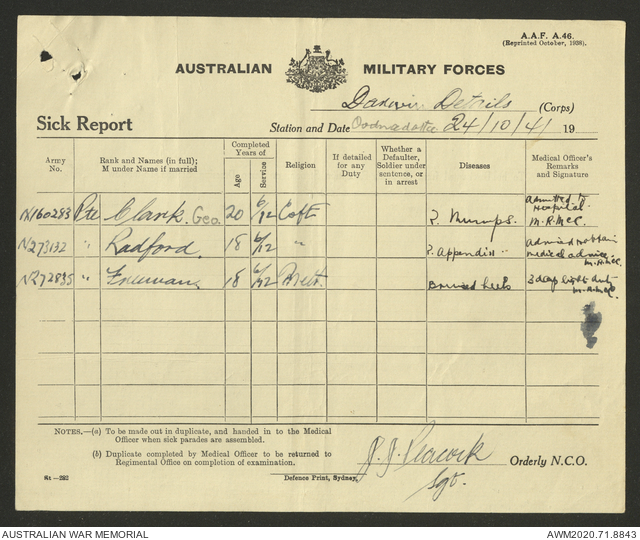 A.A.F. A.46.
(Reprinted October, 1939).
AUSTRALIAN MILITARY FORCES
Darwin Details (Corps)
Sick Report Station and Date Oodnadatta 24/10/41 19
Army No. Rank and Names (in full); M under Name if married Completed Years of Age Service Religion If detailed for any Duty Whether a Defaulter, Soldier under sentence, or in arrest Diseases Medical Officer's Remarks and Signature
N160283 Pte Clark. Geo. 20 6/12 CofE ?. Mumps. Admitted to Hospital M.R.McC.
N273132 " Radford. 18 6/12 " ?. Appendix medical advice M.R.McC.
N272835 " Freeman 18 6/12 Meth. Bruised heels 3 days light duty M.R.McC.
NOTES.—(a) To be made out in duplicate, and handed in to the Medical
Officer when sick parades are assembled.
(b) Duplicate completed by Medical Officer to be returned to
Regimental Office on completion of examination.
J. J. Peacock Orderly N.C.O.
Sgt.
St—282 Defence Print, Sydney.
AUSTRALIAN WAR MEMORIAL AWM2020.71.8843